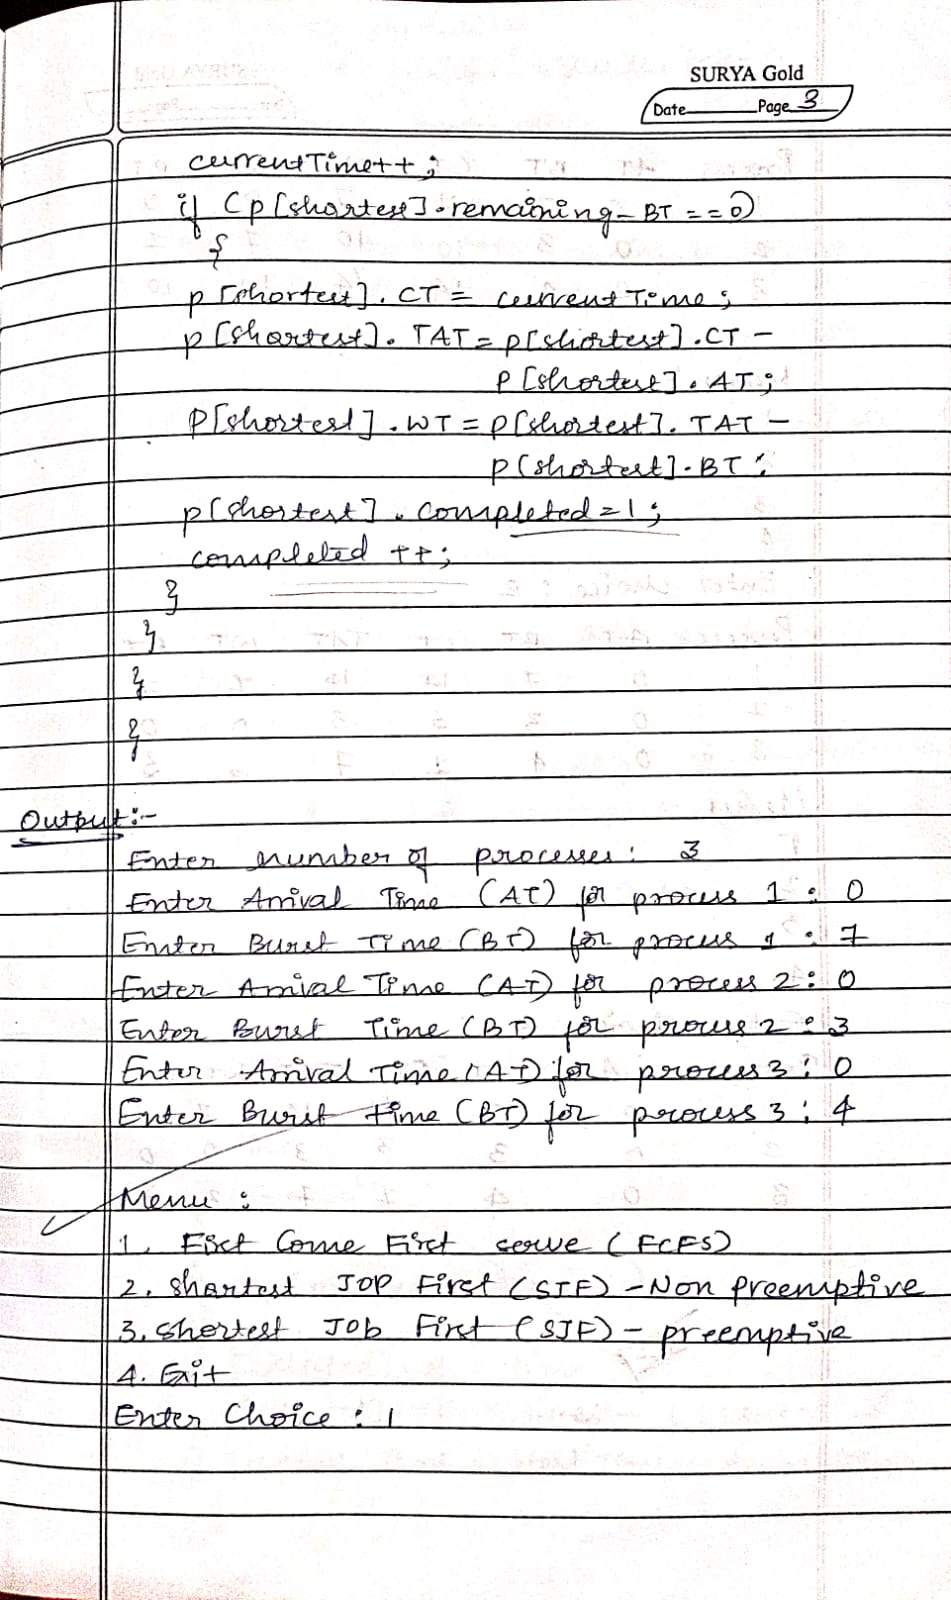 SURYA Gold
Date Page 3
currentTime++;
if (p[shortest].remaining_BT == 0)
{
p[shortest].CT = currentTime;
p[shortest].TAT = p[shortest].CT -
p[shortest].AT;
p[shortest].WT = p[shortest].TAT -
p[shortest].BT;
p[shortest].completed = 1;
completed ++;
}
}
}
}
Output:-
Enter number of processes: 3
Enter Arrival Time (AT) for process 1 : 0
Enter Burst Time (BT) for process 1 : 7
Enter Arrival Time (AT) for process 2 : 0
Enter Burst Time (BT) for process 2 : 3
Enter Arrival Time (AT) for process 3 : 0
Enter Burst time (BT) for process 3 : 4
Menu :
1. First Come First serve (FCFS)
2. Shortest JOP First (SJF) - Non preemptive
3. Shortest Job First (SJF) - preemptive
4. Exit
Enter Choice : 1